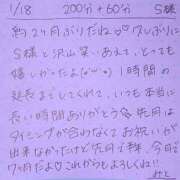 1/18 200分+60分 S様
約2ヶ月ぶりだねㅇ♡久しぶりに
S様と沢山笑いあえて、とっても
嬉しかったよ(´ω`) 1時間の
延長までしてくれて、いつも本当に
長い時間ありがとう 先月は
タイミングが合わなくてお祝いが
出来なかったけど先月で1年、今月で
7ヶ月だよ♡これからもよろしくね!!